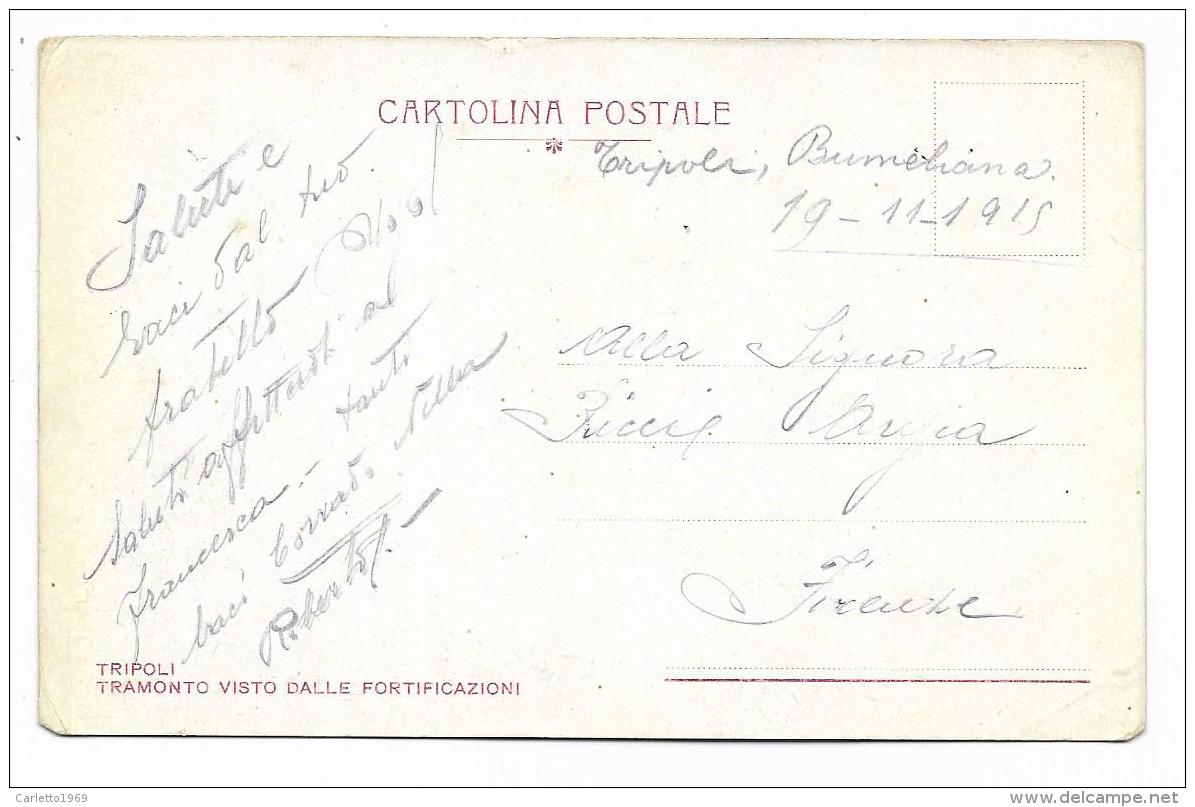 CARTOLINA POSTALE
Tripoli, Bumeliana.
19-11-1915
Saluti e
baci dal tuo
fratello
saluti affettuosi al
Francesca - tanti
baci Corrado. Nella
Roberto.
Alla Signora
Ricci Argia
Firenze
TRIPOLI
TRAMONTO VISTO DALLE FORTIFICAZIONI
Carletto1969
www.delcampe.net